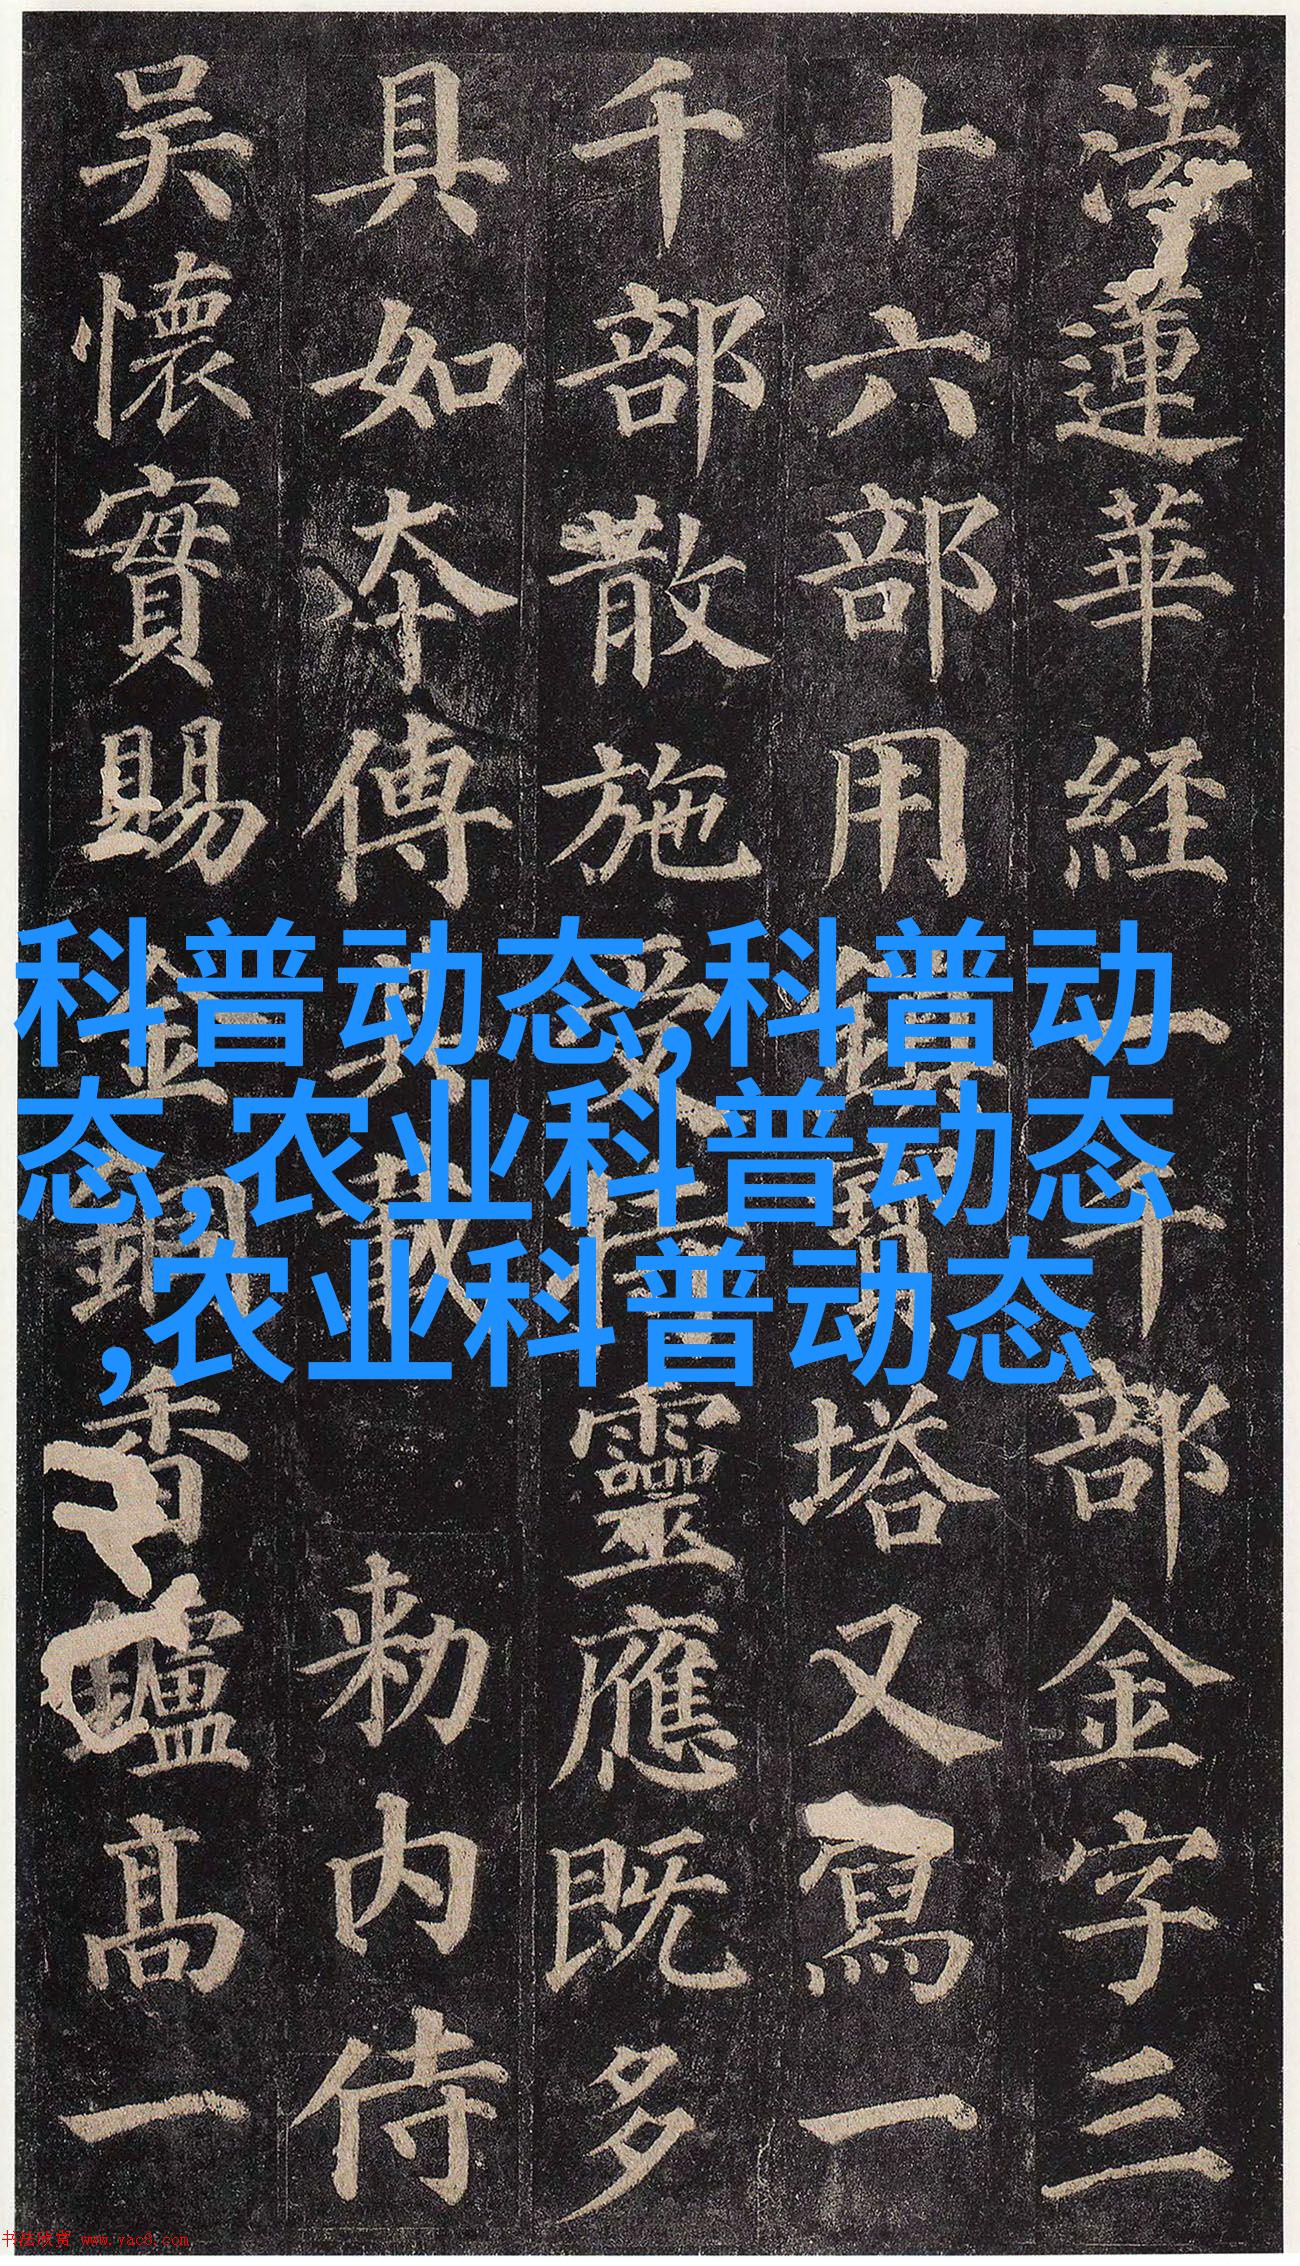 法蓮華経一千部金字三
十六部用鎮寶塔又寫一
千部散施受持靈應既多
具如夲傳其載勅内侍
吳懷實賜金銅香鑪髙一
科普动态,科普动
态,农业科普动态
,农业科普动态
书法欣赏 www.yac8.com